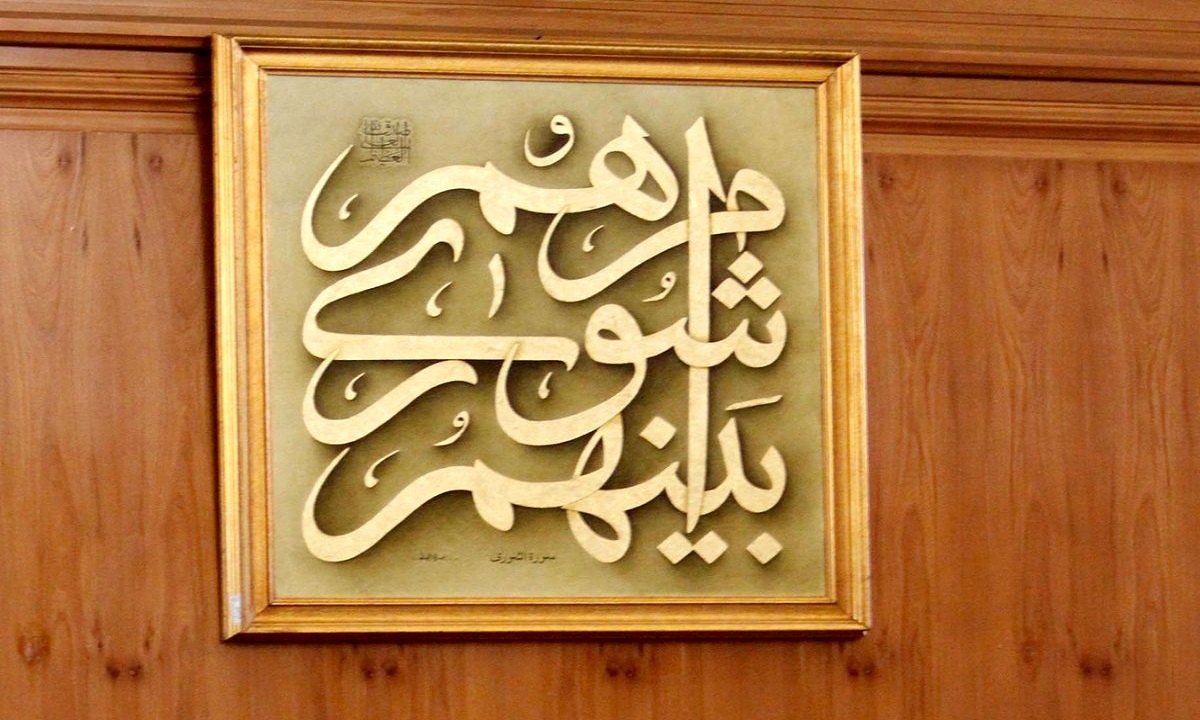 وامرهم
شورى
بَينهم
سورة الشورى